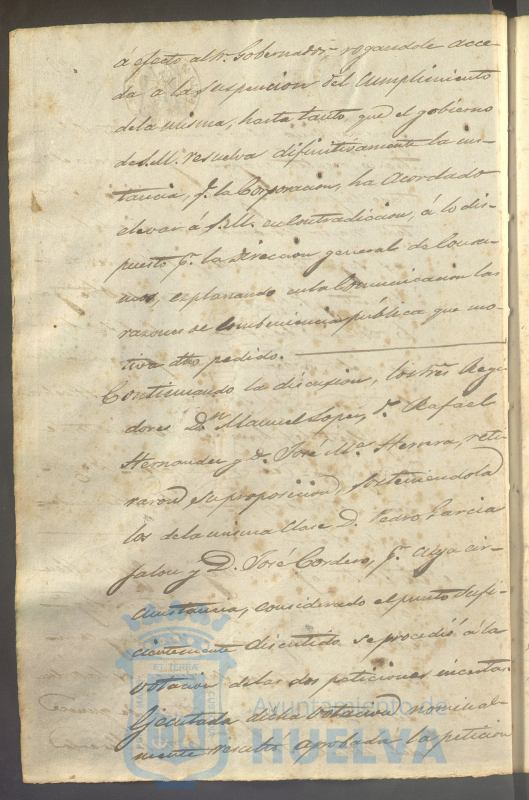 á efecto al Sr. Gobernador rogandole acce-
da a la suspencion del Cumplimiento
de la misma, hasta tanto que el gobierno
de S.M. resuelva difinitivamente la ins-
tancia, qe. la Corporacion, ha acordado
elevar á S.M. en Contradicion, á lo dis-
puesto pr. la Direccion general de Consu-
mos, esplanando en la Comunicacion las
razones de Combeniencia pública que mo-
tiva dho pedido.
Continuando la discusion, los tres Regi-
dores Dn. Manuel Lopez, D. Rafael
Hernandez y D. José Ma. Herrera, reti-
raron su proposicion, sosteniendola
los de la misma Clase D. Pedro Garcia
Jalon y D. José Cordero, pr. cuya cir-
cunstancia, considerado el punto sufi-
cientemente discutido se procedió á la
votacion de las dos peticiones
Ejecutada dicha votacion nominal-
mente resultó aprobada la peticion
ET TERRÆ
Ayuntamiento de
HUELVA